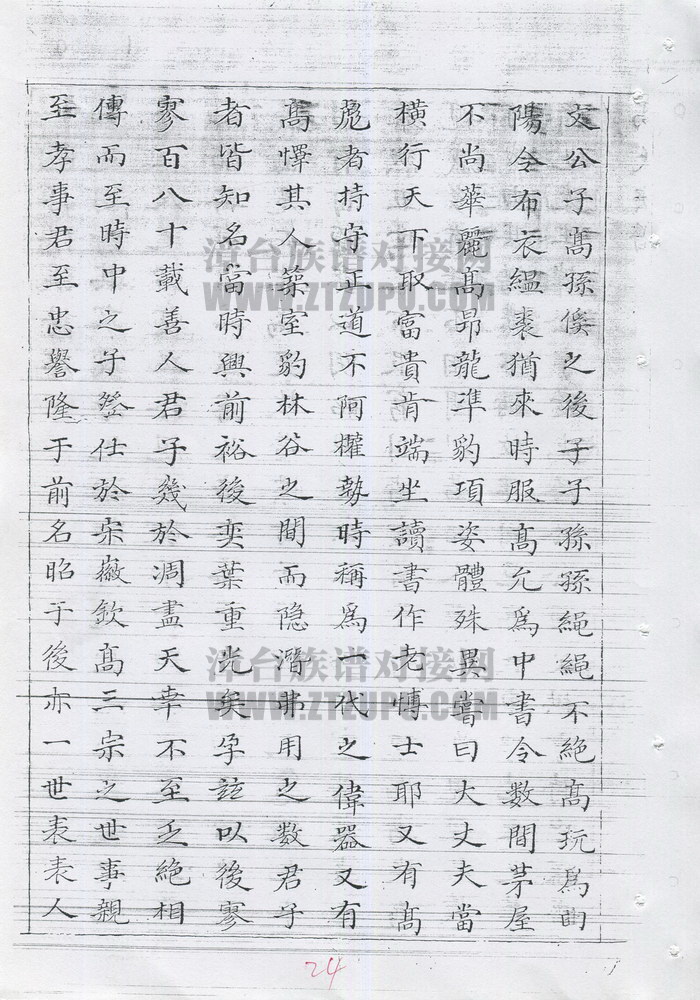 文公子高孫傒之後子子孫孫繩繩不絶高玩爲曲
陽令布衣緼裘猶來時服高允爲中書令数間茅屋
不尚華麗高昻龍準豹項姿體殊異嘗曰大丈夫當
橫行天下取富貴肯端坐讀書作老博士耶又有高
彪者持守正道不阿權勢時稱爲一代之偉器又有
高憚其人築室豹林谷之間而隐潛弗用之数君子
者皆知名當時興前裕後奕葉重光矣孕玆以後寥
寥百八十載善人君子幾於凋盡天幸不至乏絶相
傳而至時中之子登仕於宋徽欽高三宗之世事親
至孝事君至忠譽隆于前名昭于後亦一世表表人
漳台族谱对接网
WWW.ZTZUPU.COM
漳台族谱对接网
WWW.ZTZUPU.COM
24